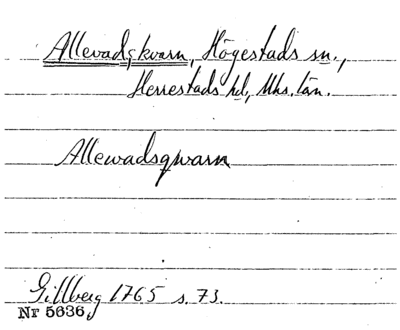 Allevadskvarn, Högestads sn.,
Herrestads hd, Mhs. län.
Allewadsqwarn
Gillberg 1765 s. 73.
Nr 5636